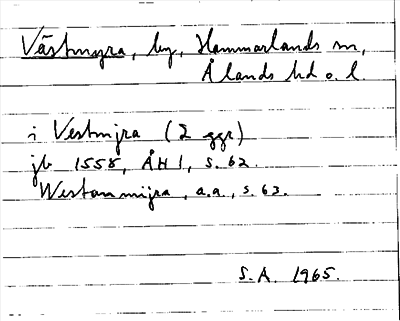 Västmyra, by, Hammarlands sn,
Ålands hd o. l.
i Vestmjra (2 ggr)
jb 1558, ÅH 1, s. 62.
Westanmijra, a.a., s. 63.
S.A. 1965.